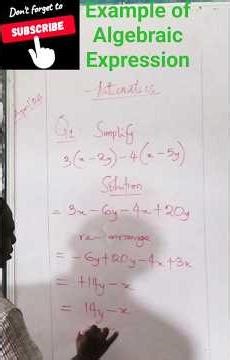 Don't forget to
SUBSCRIBE
Example of
Algebraic
Expression
Q1 Simplify
3(x-2y)-4(x-5y)
Solution
= 3x-6y-4x+20y
re-arrange
= -6y+20y-4x+3x
= +14y-x
= 14y-x